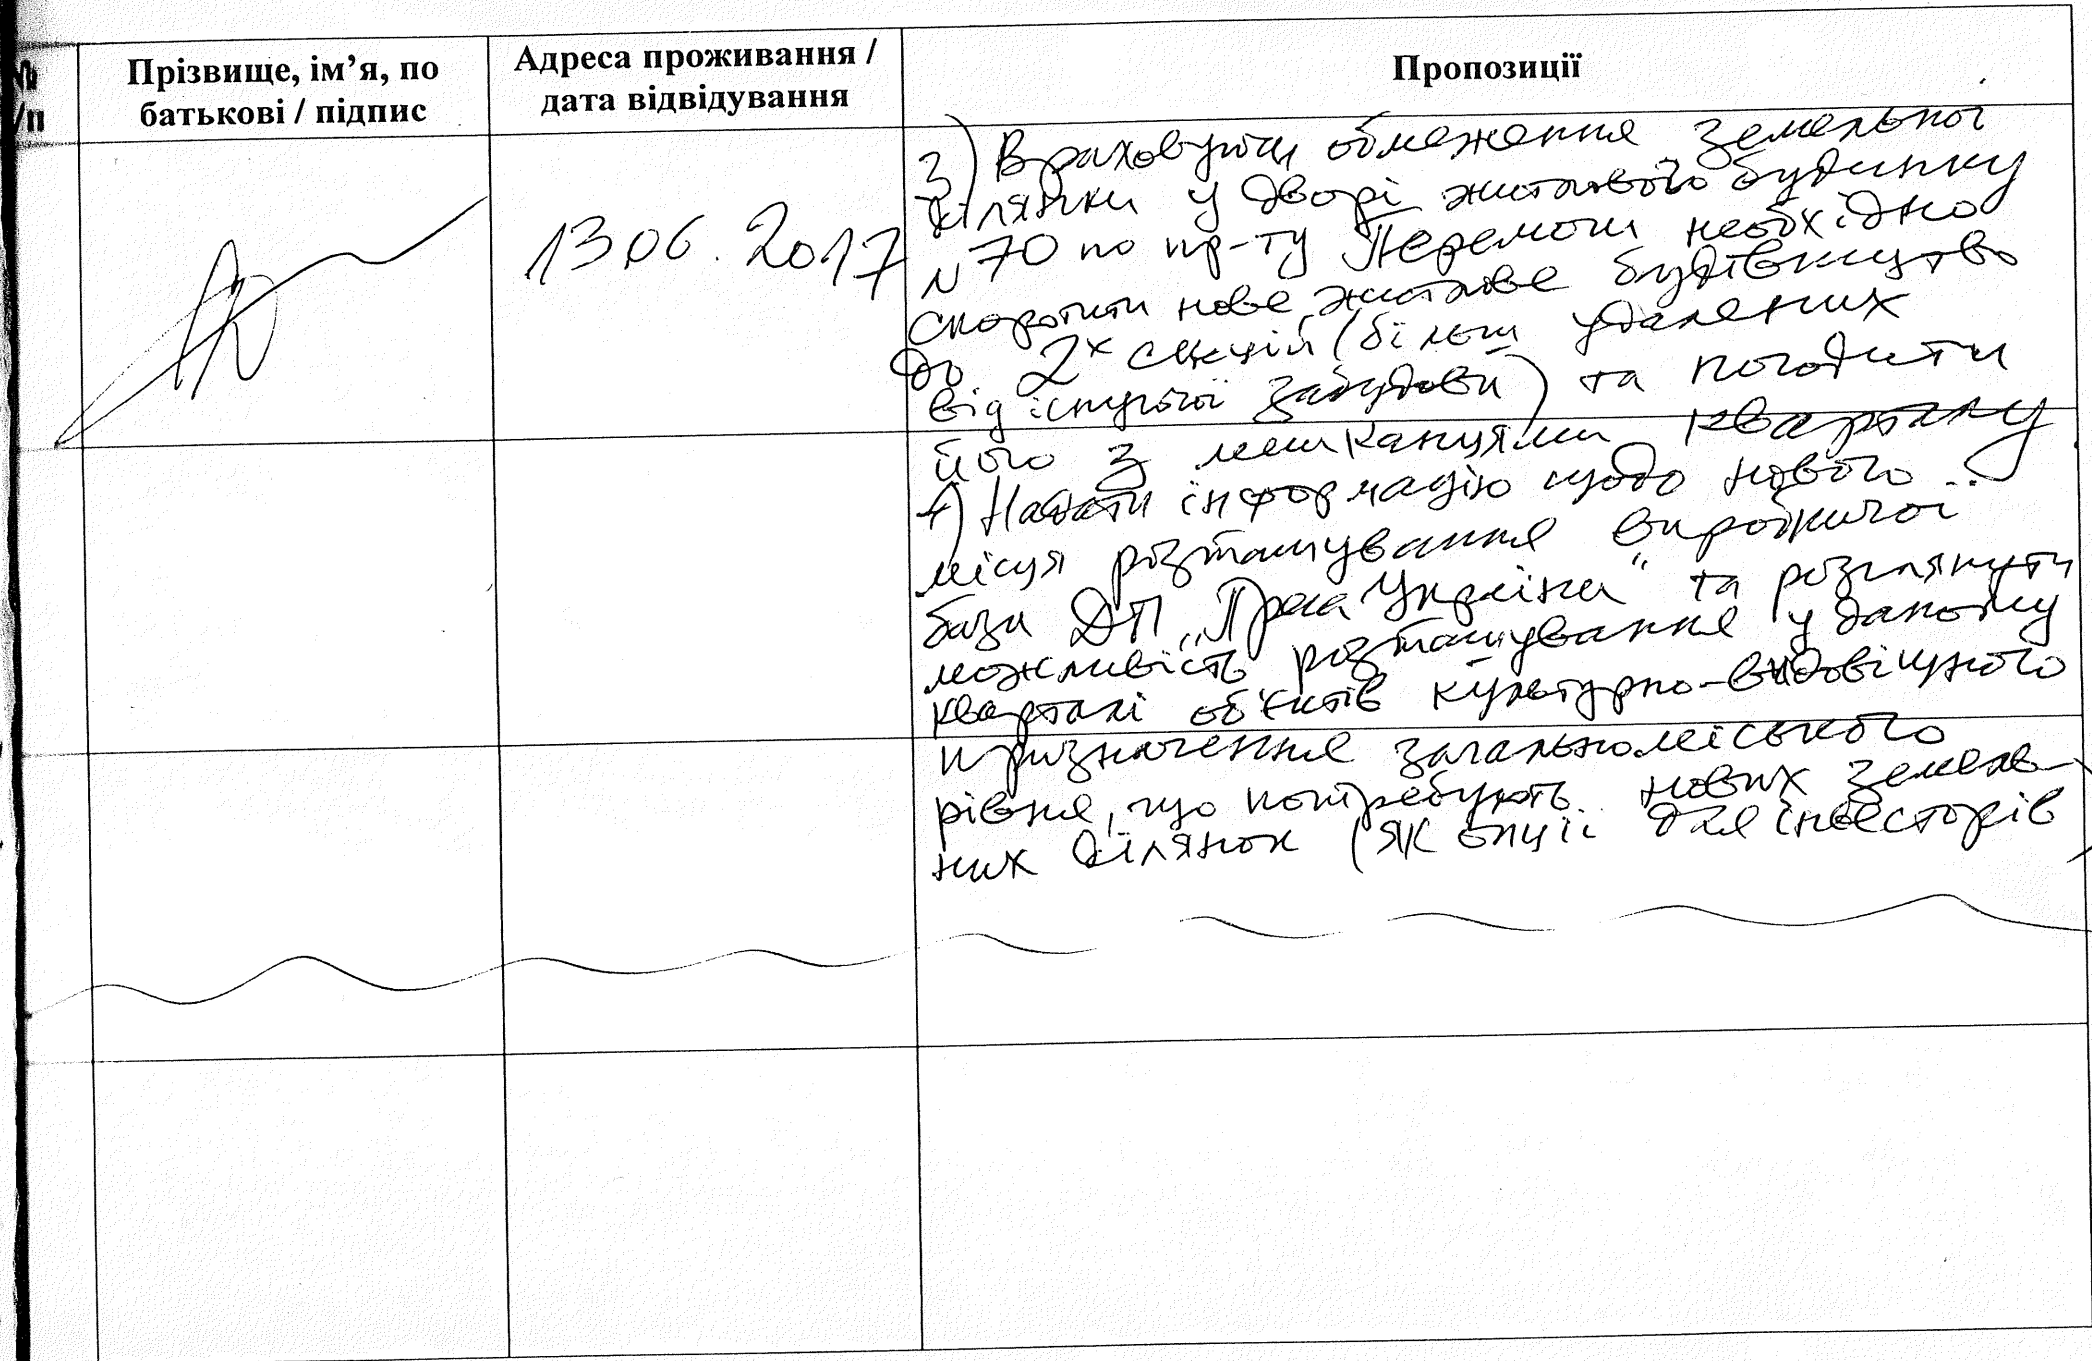 №
/п
Прізвище, ім’я, по
батькові / підпис
Адреса проживання /
дата відвідування
Пропозиції
13.06.2017
3) Враховуючи обмеження земельної
ділянки у дворі житлового будинку
N 70 по пр-ту Перемоги необхідно
скоротити нове житлове будівництво
до 2х секцій (більш удалених
від існуючої забудови) та погодити
його з мешканцями кварталу
4) Надати інформацію щодо нового
місця розташування виробничої
бази ДП „Преса Україна“ та розглянути
можливість розташування у даному
кварталі об'єктів культурно-видовищного
призначення загальноміського
рівня, що потребують нових земель-
них ділянок (як опції для інвесторів)